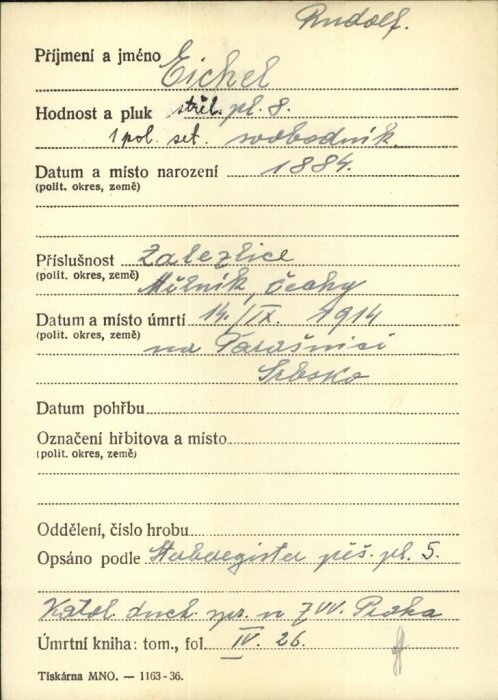 Rudolf.
Příjmení a jméno Eichel
Hodnost a pluk střel. pl. 8.
1 pol. set. svobodník
Datum a místo narození 1884.
(polit. okres, země)
Příslušnost Zalezlice
(polit. okres, země) Mělník, Čechy
Datum a místo úmrtí 14./IX. 1914
(polit. okres, země) na Parašnici
Srbsko
Datum pohřbu
Označení hřbitova a místo
(polit. okres, země)
Oddělení, číslo hrobu
Opsáno podle pěš. pl. 5.
Katol. duch. spr. u ZVV. Praha
Úmrtní kniha: tom., fol. IV. 26.
Tiskárna MNO. — 1163-36.